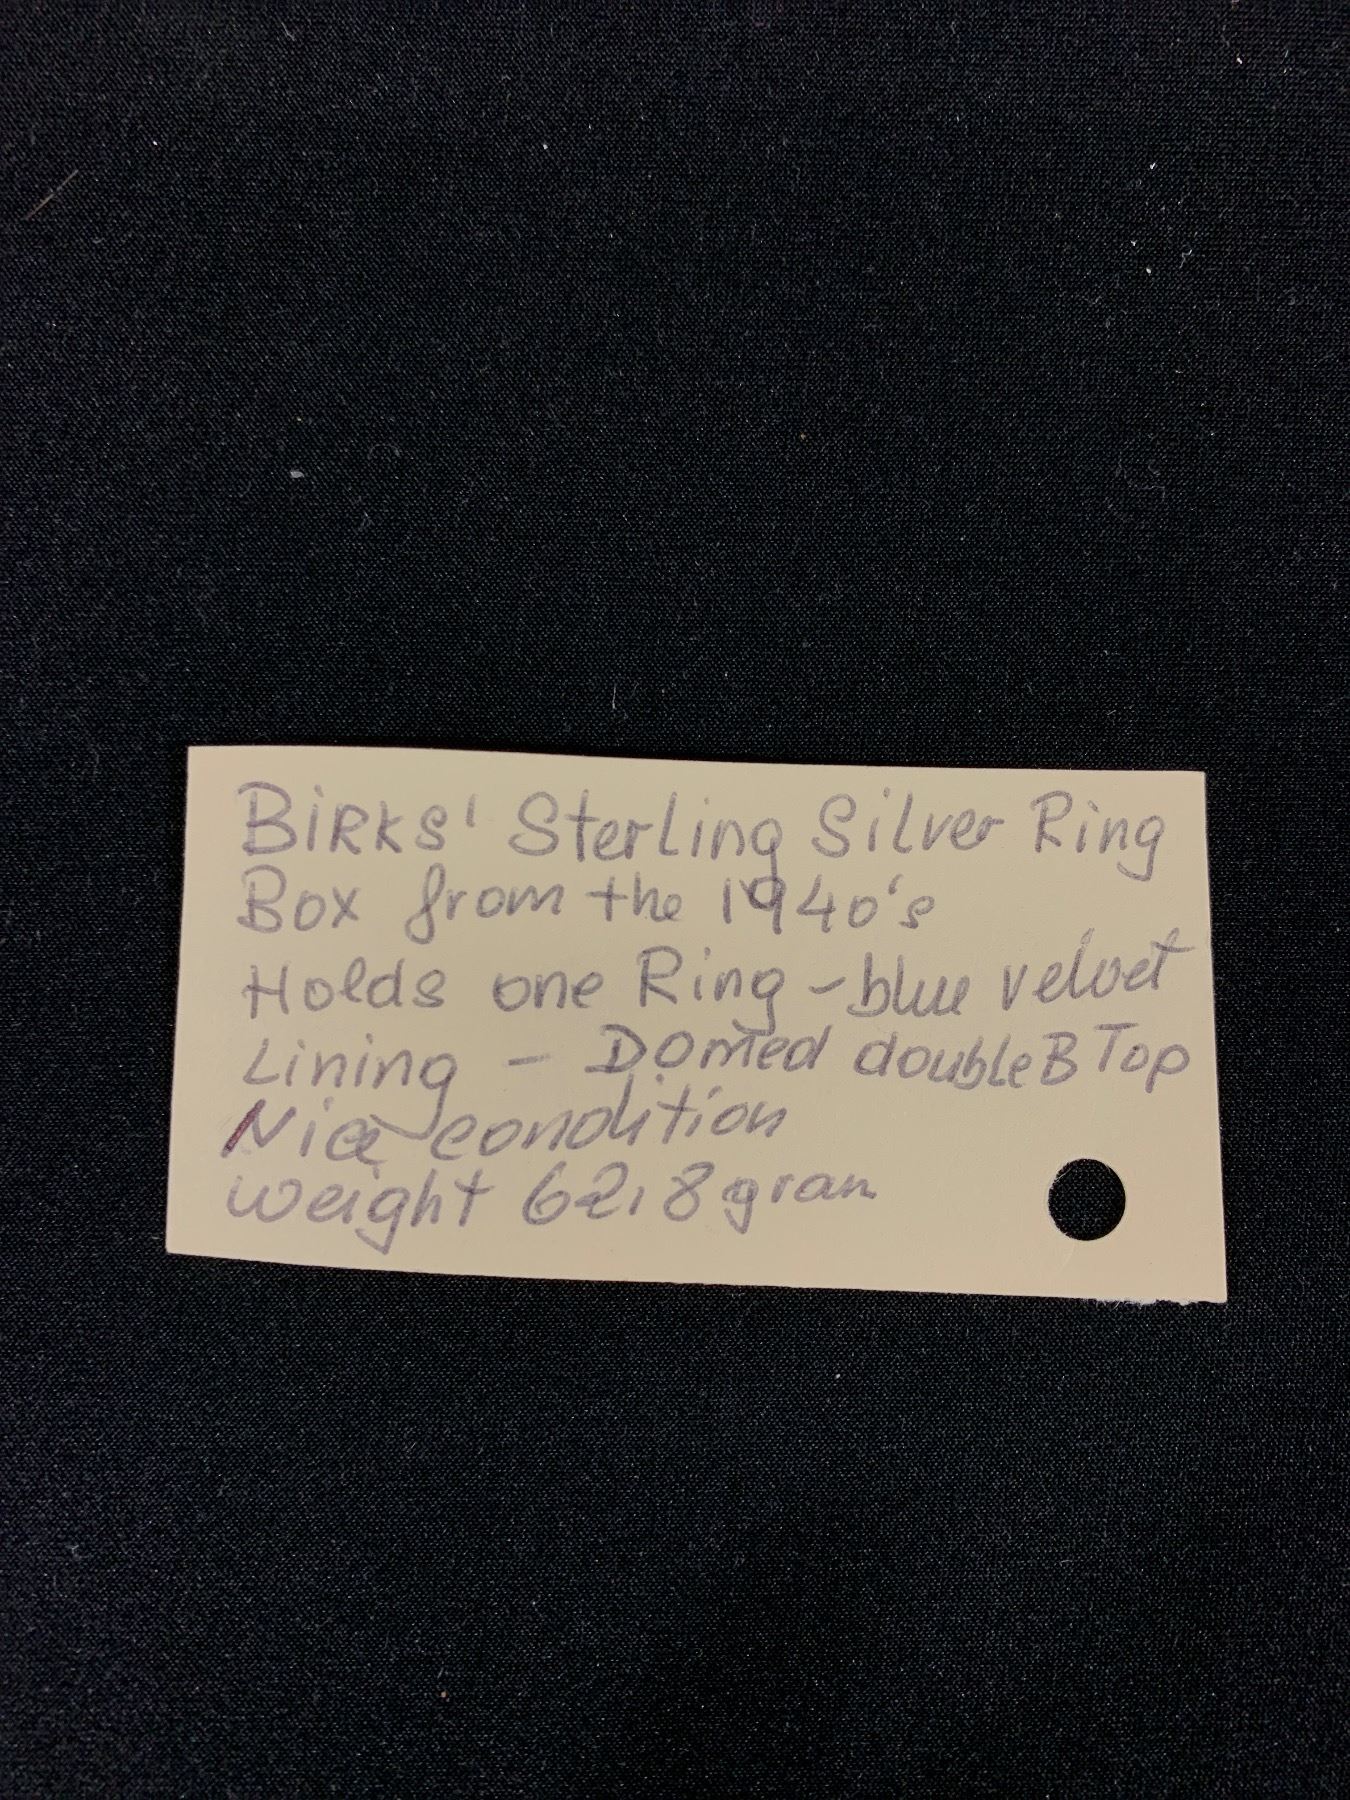 BiRKS' Sterling Silver Ring
Box from the 1940's
Holds one Ring - blue velvet
Lining - Domed double B Top
Nice condition
weight 62,8 gram